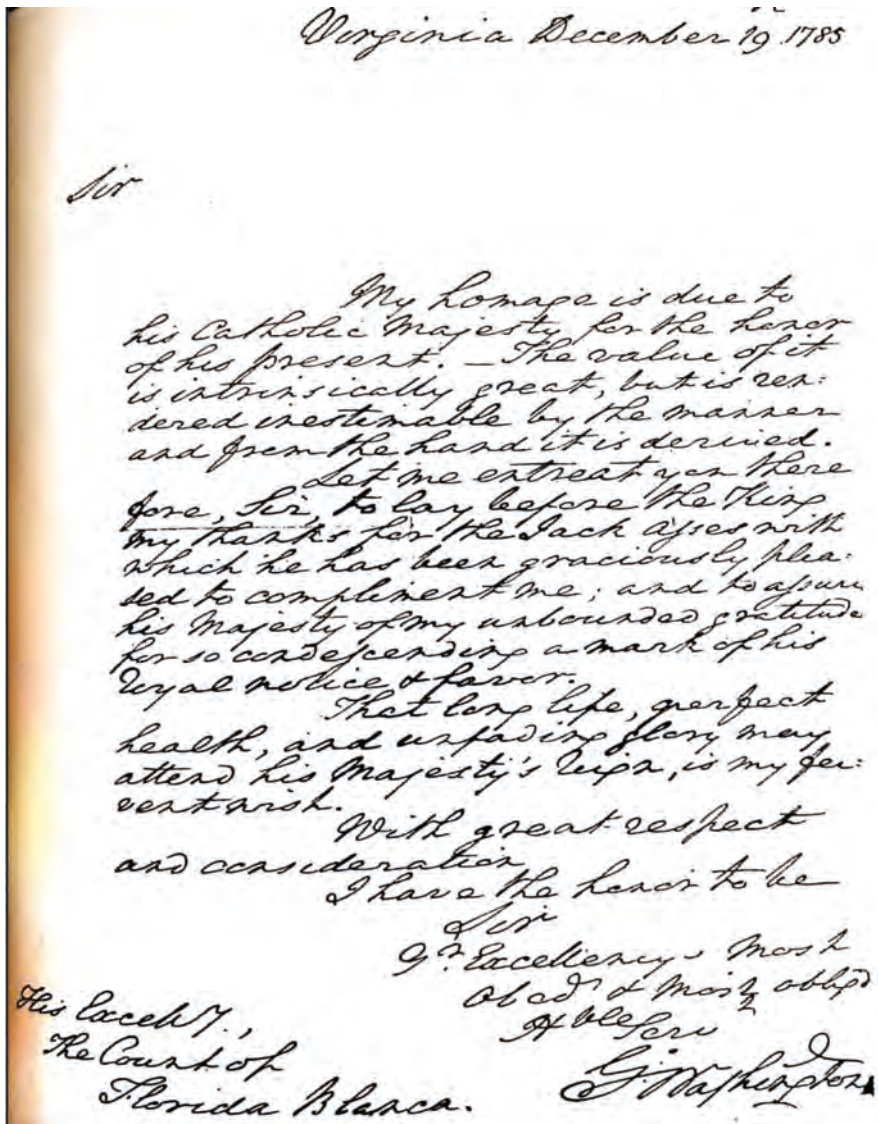 Virginia December 19 1785
Sir
My homage is due to
his Catholic Majesty for the honor
of his present. — The value of it
is intrinsically great, but is ren:
dered inestimable by the manner
and from the hand it is derived.
Let me entreat you there
fore, Sir, to lay before the King
my thanks for the Jack asses with
which he has been graciously plea:
sed to compliment me; and to assure
his Majesty of my unbounded gratitude
for so condescending a mark of his
royal notice & favor.
That long life, perfect
health, and unfading glory may
attend his Majesty's reign, is my fer:
vent wish.
With great respect
and consideration
I have the honor to be
Sir
Yr. Excellency's Most
Obedt & Most obliged
Hble Servt
G:Washington
His Excelly.,
The Count of
Florida Blanca.